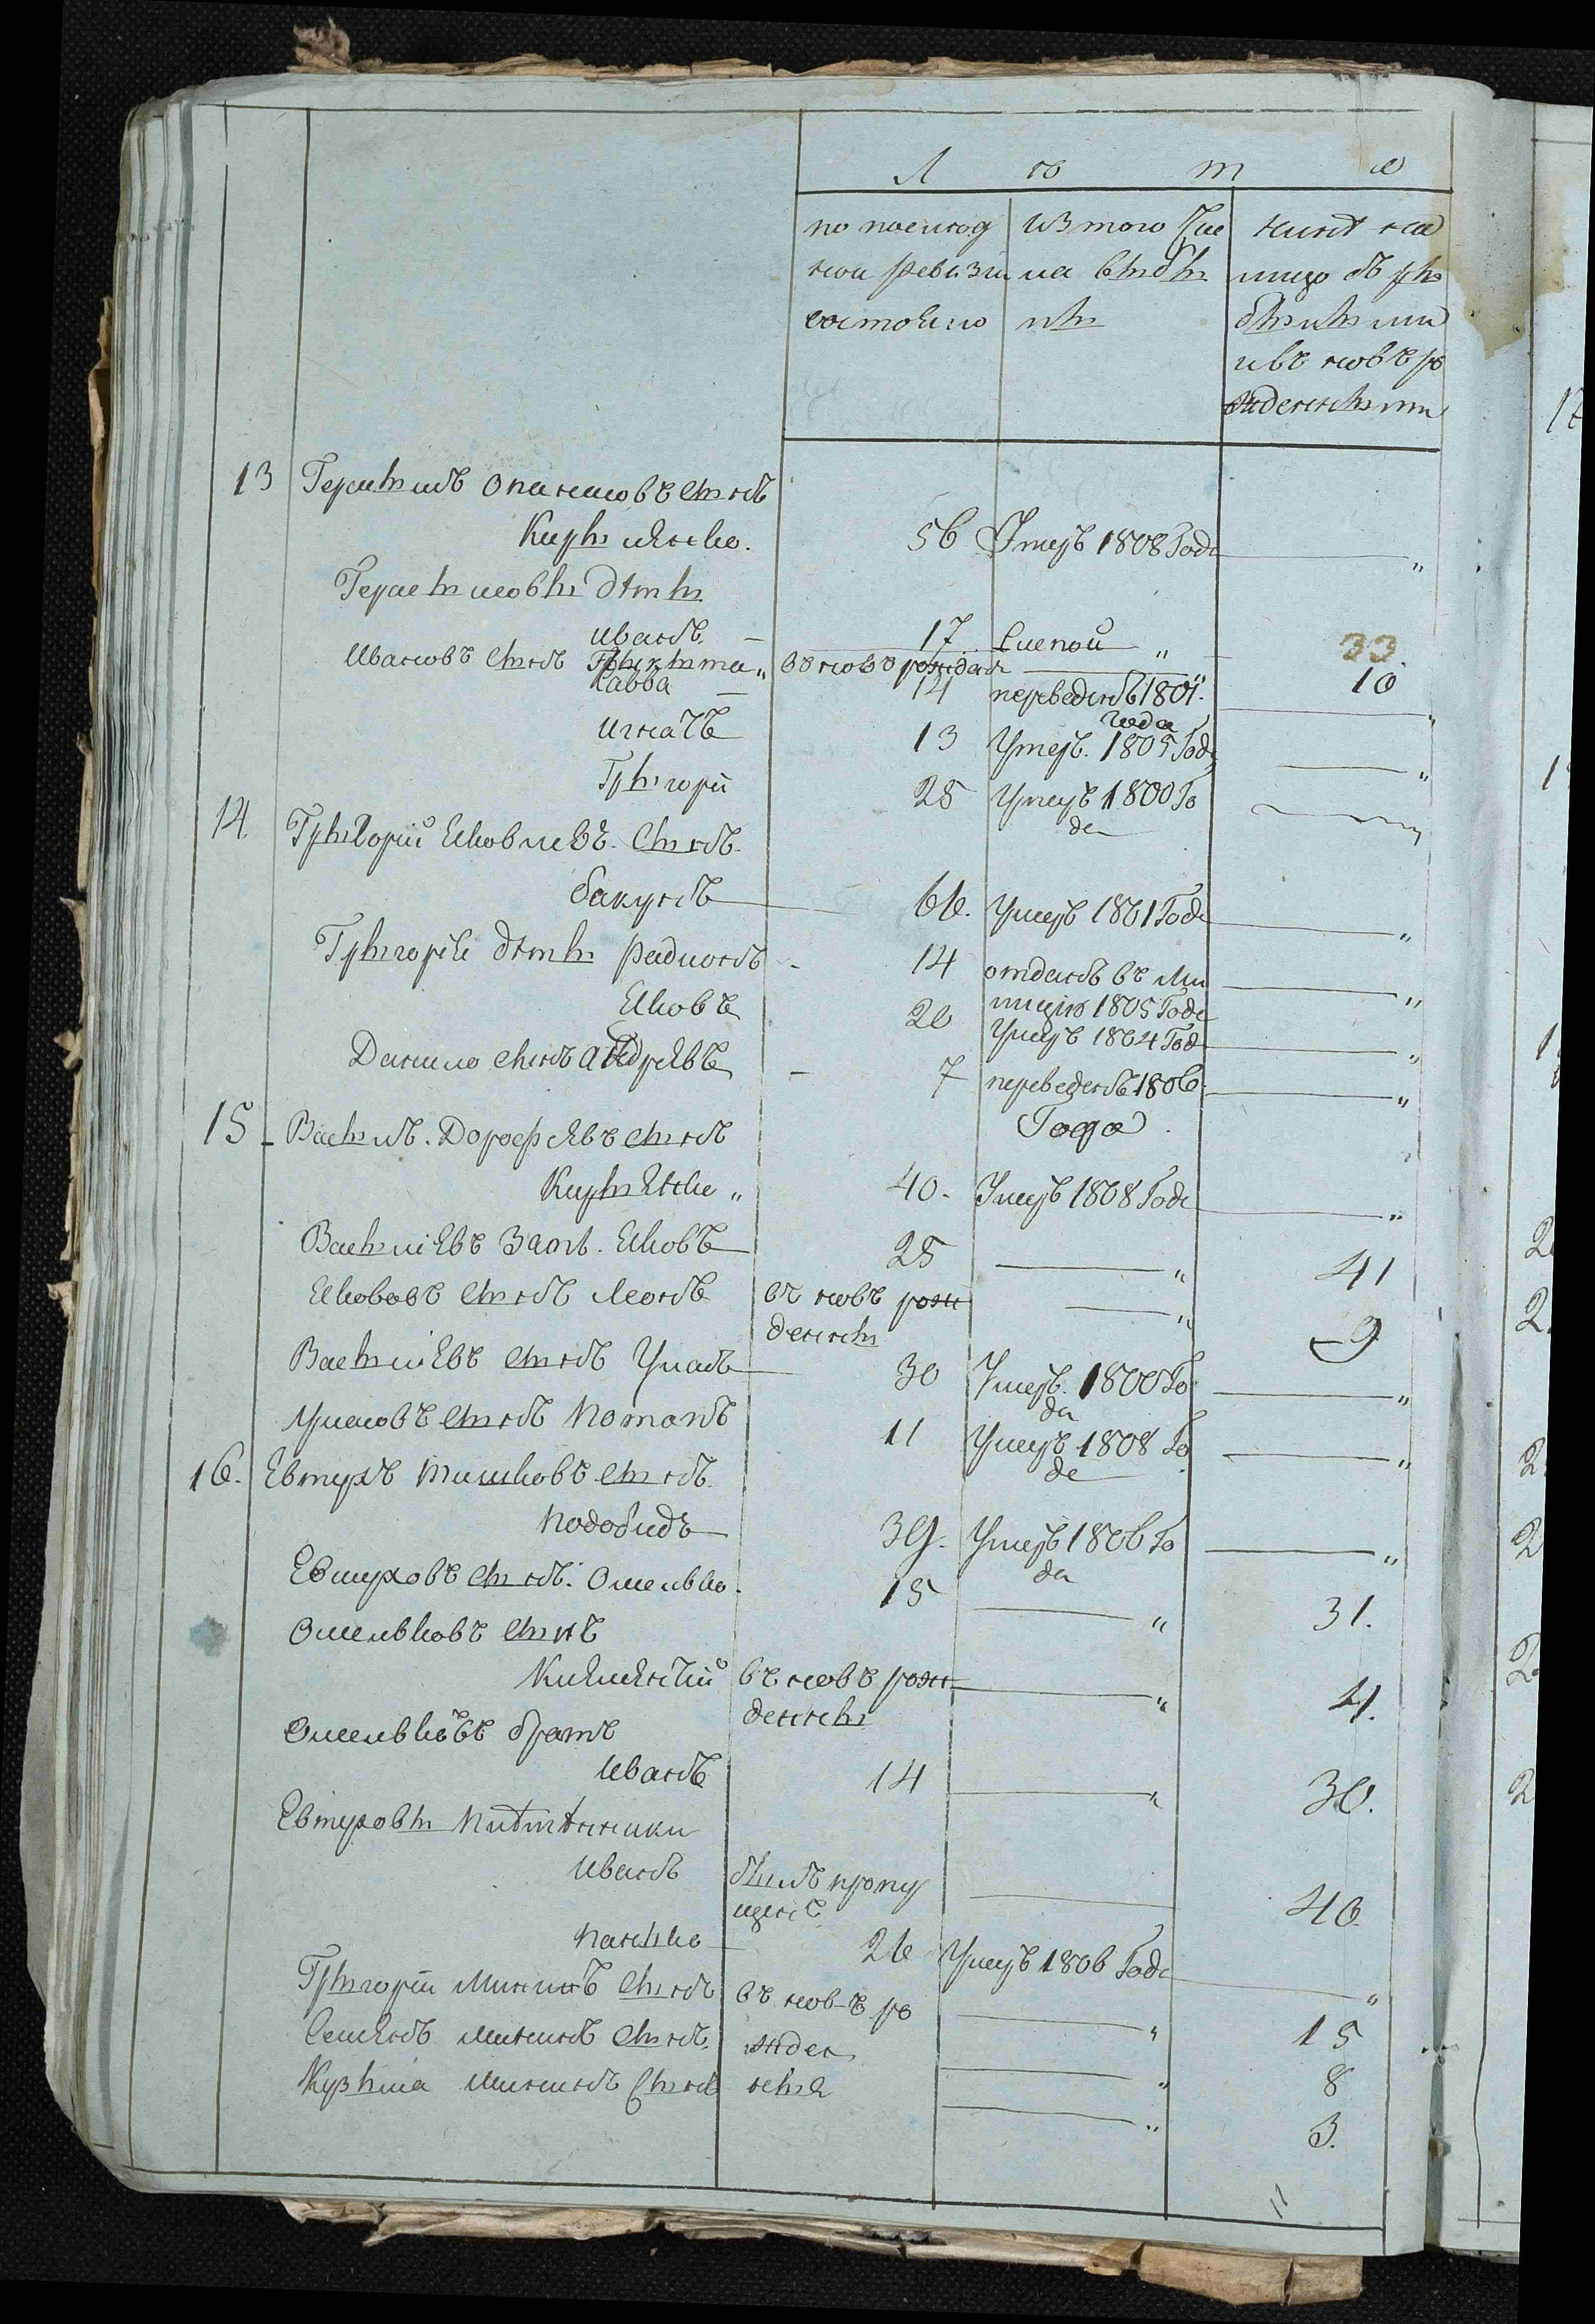 Л ѣ т а
по послѣд ней ревизіи состояло
изъ того числа выбыло
нынѣ на лицо съ рожденными
13 Герасимъ Опанасовъ сынъ
Кириленко. 56 Умеръ 1808 Года "
Герасимовы дѣти
Иванъ 17 Слепой " 33.
Ивановъ сынъ Никита " въ новъ рожден " 10
Савва 14 переведенъ 1801. года "
Игнатъ 13 Умеръ. 1805 Года "
Григорій 25 Умеръ 1800 Года
14. Григорій Яковлевъ сынъ
Бакунъ 66. Умеръ 1801 Года "
Григорія дѣти Радионъ 14 отданъ въ милицію 1805 Года "
Яковъ 20 Умеръ 1804 Год "
Данило сынъ Андреевъ 7 переведенъ 1806 Года "
15 Василь Дорофѣевъ сынъ
Кириенко " 40. Умеръ 1808 Года "
Васильевъ зять Яковъ 25 " 41
Якововъ сынъ Леонъ въ новѣ рожденны " 9
Васильевъ сынъ Уласъ 30 Умеръ. 1800 Года "
Уласовъ сынъ Потапъ 11 Умеръ 1808 Года "
16. Евтухъ Тишковъ сынъ
Подобидъ 39. Умеръ 1806 Года "
Евтуховъ сынъ. Омелько. 15 " 31.
Омельковъ сынъ
Климентій въ новѣ рожденны " 4.
Омельковъ братъ
Иванъ 14 " 30.
Евтуховы племѣнники
Иванъ былъ пропущенъ 40.
Панько 26 Умеръ 1806 Года "
Григорій Мининъ сынъ въ новѣ ро " 15
Семенъ Мининъ сынъ жден " 8
Кузьма Мининъ сынъ ныя " 3.
11